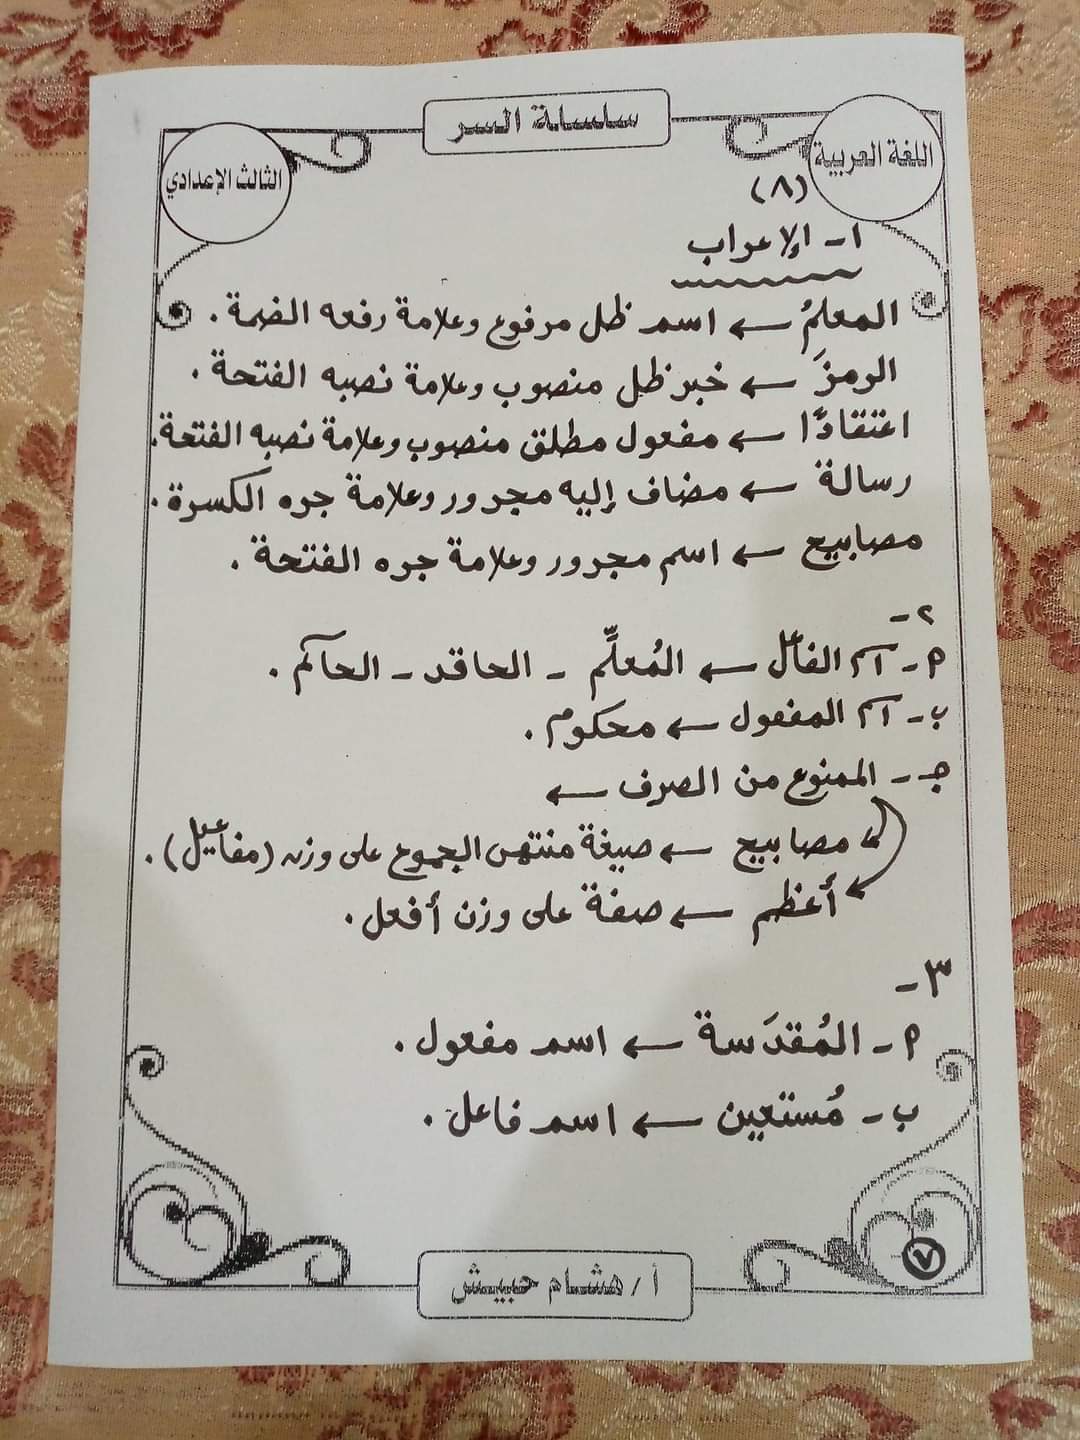 سلسلة السر
اللغة العربية
الثالث الإعدادي
(٨)
١- الإعراب
المعلمُ ← اسم ظل مرفوع وعلامة رفعه الضمة.
الرمزَ ← خبر ظل منصوب وعلامة نصبه الفتحة.
اعتقادًا ← مفعول مطلق منصوب وعلامة نصبه الفتحة.
رسالة ← مضاف إليه مجرور وعلامة جره الكسرة.
مصابيح ← اسم مجرور وعلامة جره الفتحة.
٢-
أ- اسم الفاعل ← المُعلِّم - الحاقد - الحاكم.
ب- اسم المفعول ← محكوم.
جـ- الممنوع من الصرف ←
مصابيح ← صيغة منتهى الجموع على وزن (مفاعيل).
أعظم ← صفة على وزن أفعل.
٣-
أ- المُقدَسة ← اسم مفعول.
ب- مُستعين ← اسم فاعل.
٧
أ / هشام حبيش